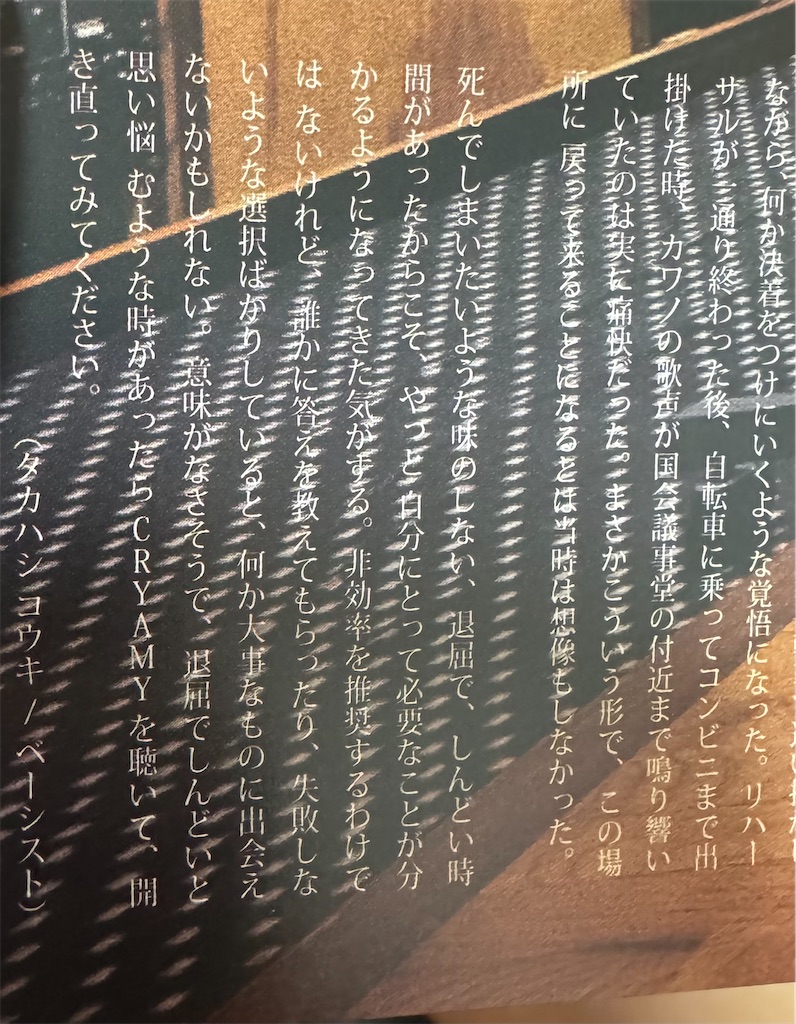 ながら、何か決着をつけにいくような覚悟になった。リハー
サルが一通り終わった後、自転車に乗ってコンビニまで出
掛けた時、カワノの歌声が国会議事堂の付近まで鳴り響い
ていたのは実に痛快だった。まさかこういう形で、この場
所に戻って来ることになるとは当時は想像もしなかった。
死んでしまいたいような味のしない、退屈で、しんどい時
間があったからこそ、やっと自分にとって必要なことが分
かるようになってきた気がする。非効率を推奨するわけで
はないけれど、誰かに答えを教えてもらったり、失敗しな
いような選択ばかりしていると、何か大事なものに出会え
ないかもしれない。意味がなさそうで、退屈でしんどいと
思い悩むような時があったらCRYAMYを聴いて、開
き直ってみてください。
（タカハシコウキ／ベーシスト）